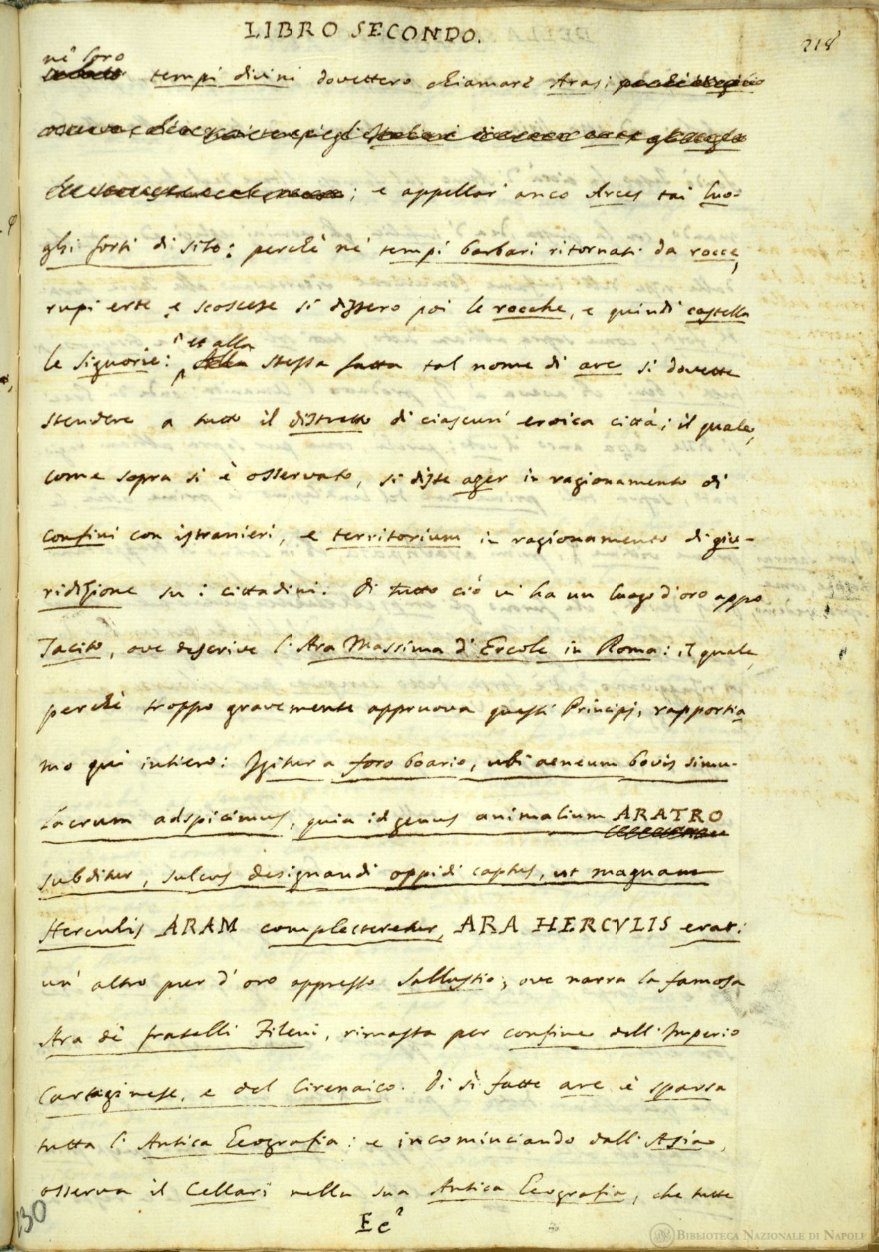 LIBRO SECONDO.
218
ne' loro
tempi divini dovettero chiamare Aras;
; e appellar' anco Arces tai luo-
ghi forti di sito: perchè ne' tempi barbari ritornati da rocce,
rupi erte, e scoscese si dissero poi le rocche, e quindi castella
le Signorie: et alla stessa fatta tal nome di are si dovette
stendere a tutto il distretto di ciascun' eroica città; il quale,
come sopra si è osservato, si disse ager in ragionamento di
confini con istranieri, e territorium in ragionamento di giu-
ridizione su i cittadini. Di tutto ciò vi ha un luogo d'oro appo
Tacito, ove descrive l'Ara Massima d'Ercole in Roma: il quale,
perchè troppo gravemente appruova questi Principj, rapportia
mo qui intiero: Igitur a foro boario, ubi aeneum bovis simu-
lacrum adspicimus, quia id genus animalium ARATRO
subditur, sulcus designandi oppidi captus, ut magnam
Herculis ARAM complecteretur, ARA HERCVLIS erat:
un' altro pur d'oro appresso Sallustio; ove narra la famosa
Ara de' fratelli Fileni, rimasta per confine dell'Imperio
Cartaginese, e del Cirenaico. Di sì fatte are è sparsa
tutta l'Antica Geografia: e incominciando dall'Asia,
osserva il Cellari nella sua Antica Geografia, che tutte
130
Ee 2
BIBLIOTECA NAZIONALE DI NAPOLI